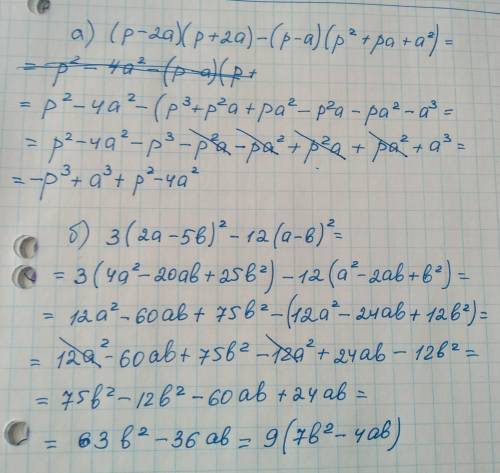 а) (p-2a)(p+2a)-(p-a)(p²+pa+a²)=
= p²-4a²-(p-a)(p+
= p²-4a²-(p³+p²a+pa²-p²a-pa²-a³=
= p²-4a²-p³-p²a-pa²+p²a+pa²+a³=
= -p³+a³+p²-4a²
б) 3(2a-5в)²-12(a-в)²=
= 3(4a²-20aв+25в²)-12(a²-2aв+в²)=
= 12a²-60aв+75в²-(12a²-24aв+12в²)=
= 12a²-60aв+75в²-12a²+24aв-12в²=
= 75в²-12в²-60aв+24aв=
= 63в²-36aв=9(7в²-4aв)